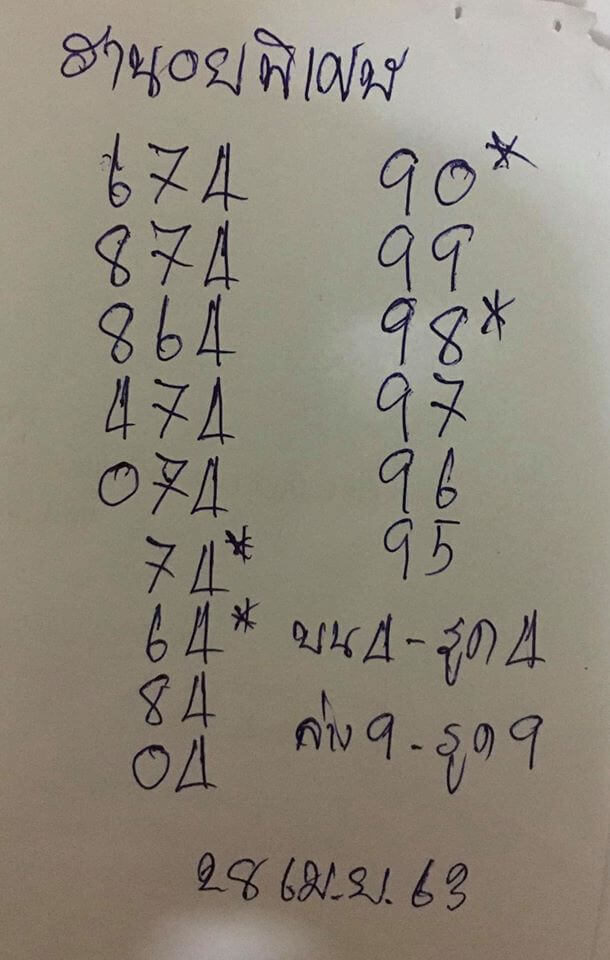 ฮานอยพิเศษ
674 90*
874 99
864 98*
474 97
074 96
74* 95
64* บน4-รูด4
84 ล่าง9-รูด9
04
28 เม.ย. 63